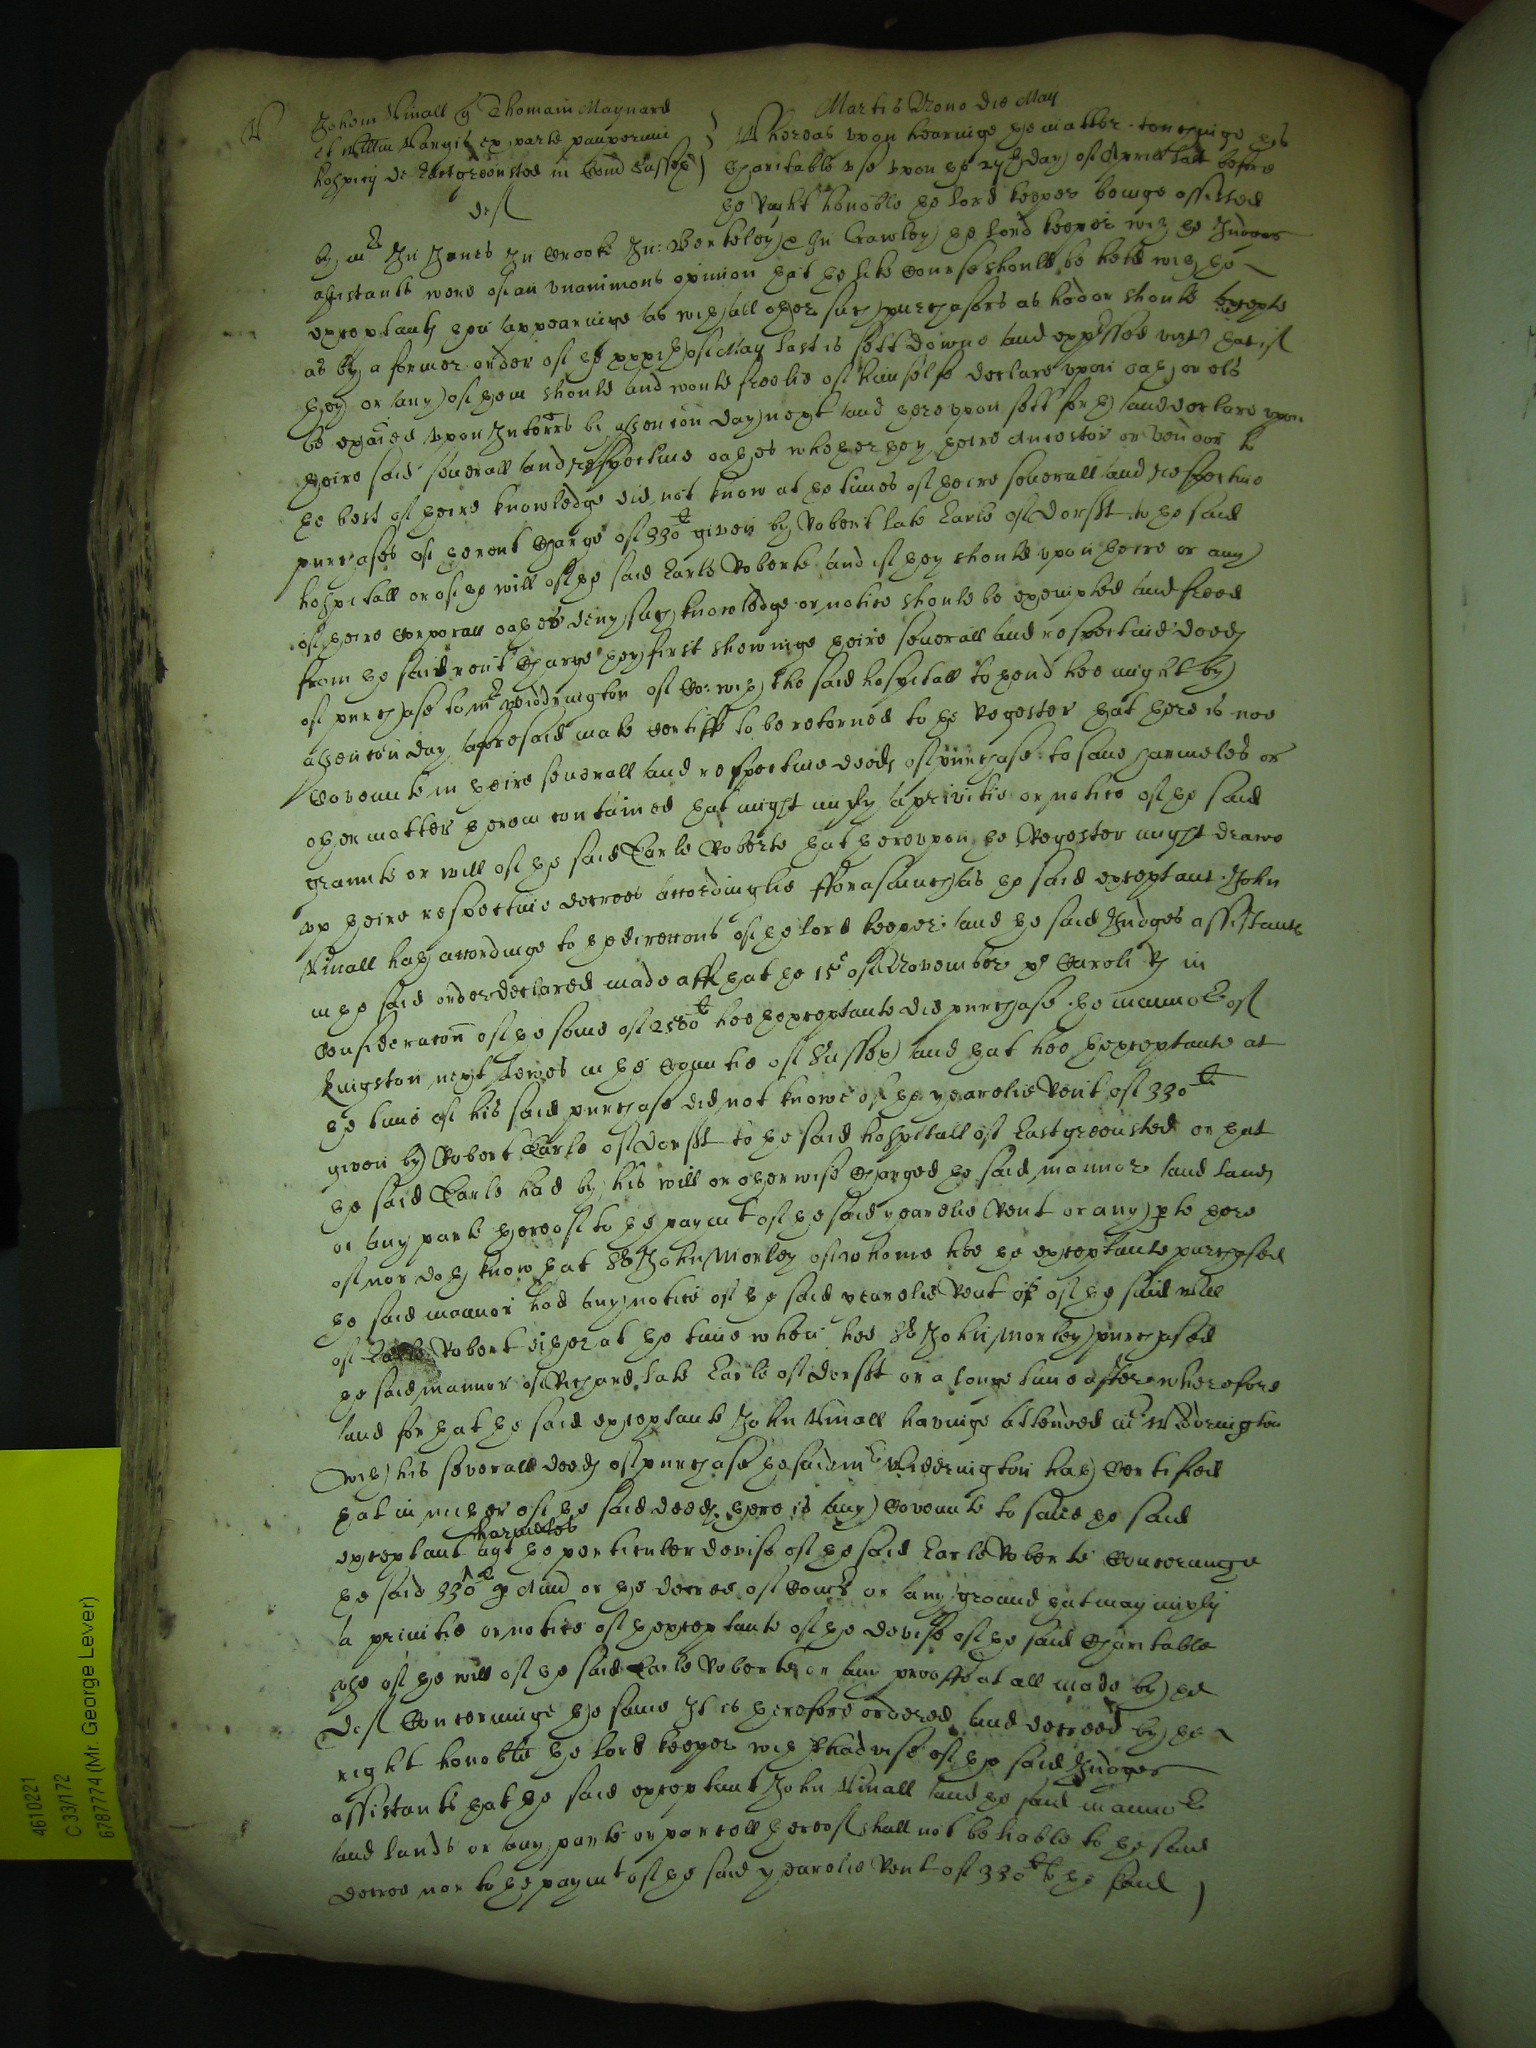 Martis Nono die May
V Johem Vinall & Thomam Maynard
et Willm Vargis ex parte pauperum
hospitij de Eastgreensted in Com Sussex
def
Whereas vpon hearinge the matter touchinge this
Charitable vse vpon the 27th day of Aprill last before
the Right honoble the lord keeper beinge assisted
by mr Ju Jones Ju Crooke Ju: Berkeley & Ju Crawley the lord keeper with the Judges
assistants were of an vnanimous opinion that the like course should be held with the
exceptants then appearinge as with all other such purchasers as had or should excepte
as by a former order of the xxxith of May last is sett downe and expressed vizt that if
they or any of them should and would freelie of himselfe declare vpon oath or els
be exaied vpon Interrs by assencon day next and therevpon sett forth and declare vpon
theire said seuerall and respectiue oathes whether they theire Ancestor or vendor to
the best of theire knowledge did not know at the times of theire seuerall and respectiue
purchases of the rent Charge of 330li given by Robert late Earle of Dorsst to the said
hospitall or of the will of the said Earle Roberte and if they should vpon theire or any
of theire Corporall oathes deny such knowledge or notice should be exempted and freed
from the said rent Charge they first shewinge theire seuerall and respectiue deeds
of purchase to mr Widdrington of Co: with the said hospitall to thend hee might by
assencon day aforesaid make certiffe to be returned to the Regester that there is noe
Covennte in theire seuerall and respectiue deeds of purchase to saue harmeles or
other matter therein contained that might imply a privitie or notice of the said
graunte or will of the said Earle Roberte that therevpon the Regester might drawe
vp theire respectiue decrees accordinglie fforasmuch as the said exceptant John
Vinall hath accordinge to the direccons of the lord keeper and the said Judges assistants
in the said order declared made afft that the 15th of November Caroli R in
Consideracon of the some of 2580li hee thexceptante did purchase the mannor of
Kingston next Lewes in the Countie of Sussex and that hee thexceptante at
the time of his said purchase did not knowe of the yearelie Rent of 330li
given by Robert Earle of Dorsst to the said hospitall of Eastgreensted or that
the said Earle had by his will or otherwise Charged the said mannor and lands
or any parte thereof to the paymt of the said yearelie Rent or any pte there
of nor doth know that Sr John Morley of whome hee the exceptante purchased
the said mannor had any notice of the said yearelie Rent or of the said will
of Earle Robert either at the time when hee Sr John Morley purchased
the said mannor of Richard late Earle of Dorsst or a longe time after wherefore
and for that the said exceptante John Vinall havinge attended mr Widdrington
with his severall deeds of purchase the said mr Widdrington hath Certified
that in neither of the said deeds there is any Covennte to saue the said
exceptant harmeles agt the perticuler devise of the said Earle Roberte Concerninge
the said 330li p Annu or the decree of Court or any ground that may imply
a privitie or notice of thexceptante of the devise of the said Charitable
vse of the will of the said Earle Roberte or any prooffe at all made by the
def Concerninge the same It is therefore ordered and decreed by the
right honoble the lord keeper with thadvise of the said Judges
assistants that the said exceptant John Vinall and the said mannor
and lands or any parte or parcell thereof shall not be liable to the said
decree nor to the paymt of the said yearelie Rent of 330li to the said
4610221
C 33/172
6787774 (Mr. George Lever)